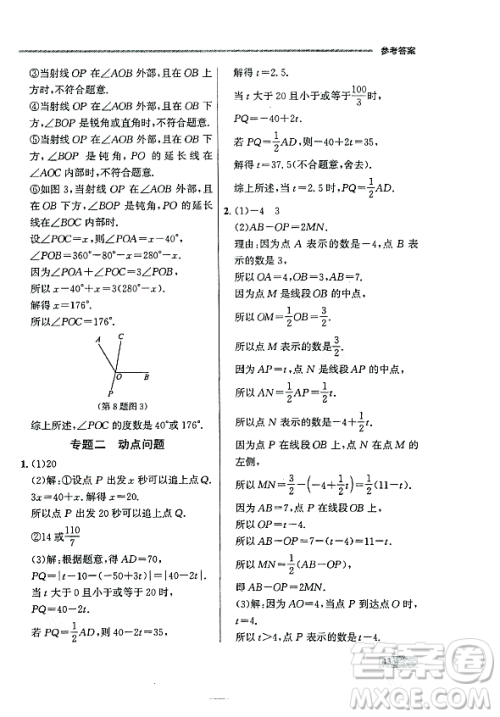 参考答案
③当射线 OP 在∠AOB 外部,且在 OA 上方
时,不符合题意.
④当射线 OP 在∠AOB 外部,且在 OB 下
方,∠BOP 是锐角或直角时,不符合题意.
⑤当射线 OP 在∠AOB 外部,且在 OB 下
方,∠BOP 是钝角,PO 的延长线在
∠AOC 内部时,不符合题意.
⑥如图 3,当射线 OP 在∠AOB 外部,且在
OB 下方,∠BOP 是钝角,PO 的延长线在
∠BOC 内部时,符合题意.
设∠POC=x°,则∠POA=x°-40°,
∠POB=360°-80°-x°=280°-x°.
因为∠POA+∠POC=3∠POB,
所以 x°-40°+x°=3(280°-x°).
解得 x=176°.
所以∠POC=176°.
A
C
O
B
P
(第 8 题图 3)
综上所述,∠POC 的度数是 40°或 176°.
专题二 动点问题
1. (1)20
(2)解:①设点 P 出发 x 秒可以追上点 Q.
3x=40+x.解得 x=20.
所以点 P 出发 20 秒可以追上点 Q.
②14 或110/7
(3)解:根据题意,得 AD=70,
PQ=|t-10-(-50+3t)|=|40-2t|.
当 t 大于 0 且小于或等于 20 时,
PQ=40-2t.
若 PQ=1/2AD,则 40-2t=35,
解得 t=2.5.
当 t 大于 20 且小于或等于100/3时,
PQ=-40+2t.
若 PQ=1/2AD,则-40+2t=35,
解得 t=37.5(不合题意,舍去).
综上所述,当 t=2.5 时,PQ=1/2AD.
2. (1)-4 3
(2)AB-OP=2MN.
理由:因为点 A 表示的数是-4,点 B 表
示的数是 3,
所以 OA=4,OB=3,AB=7.
因为点 M 是线段 OB 的中点,
所以 OM=1/2OB=3/2.
所以点 M 表示的数是3/2.
因为 AP=t,点 N 是线段 AP 的中点,
所以 AN=1/2AP=1/2t.
所以点 N 表示的数是-4+1/2t.
因为点 P 在线段 AO 上,所以点 N 在点 M 的
左侧.
所以 MN=3/2-(-4+1/2t)=11/2-1/2t.
因为 AB=7,OP=4-t,
所以 AB-OP=7-(4-t)=3+t.
所以 2MN=11-t.
即 AB-OP=2MN.
(3)解:因为 AO=4,当点 P 到达点 O 时,
所以 t>4,点 P 表示的数是-4+t.